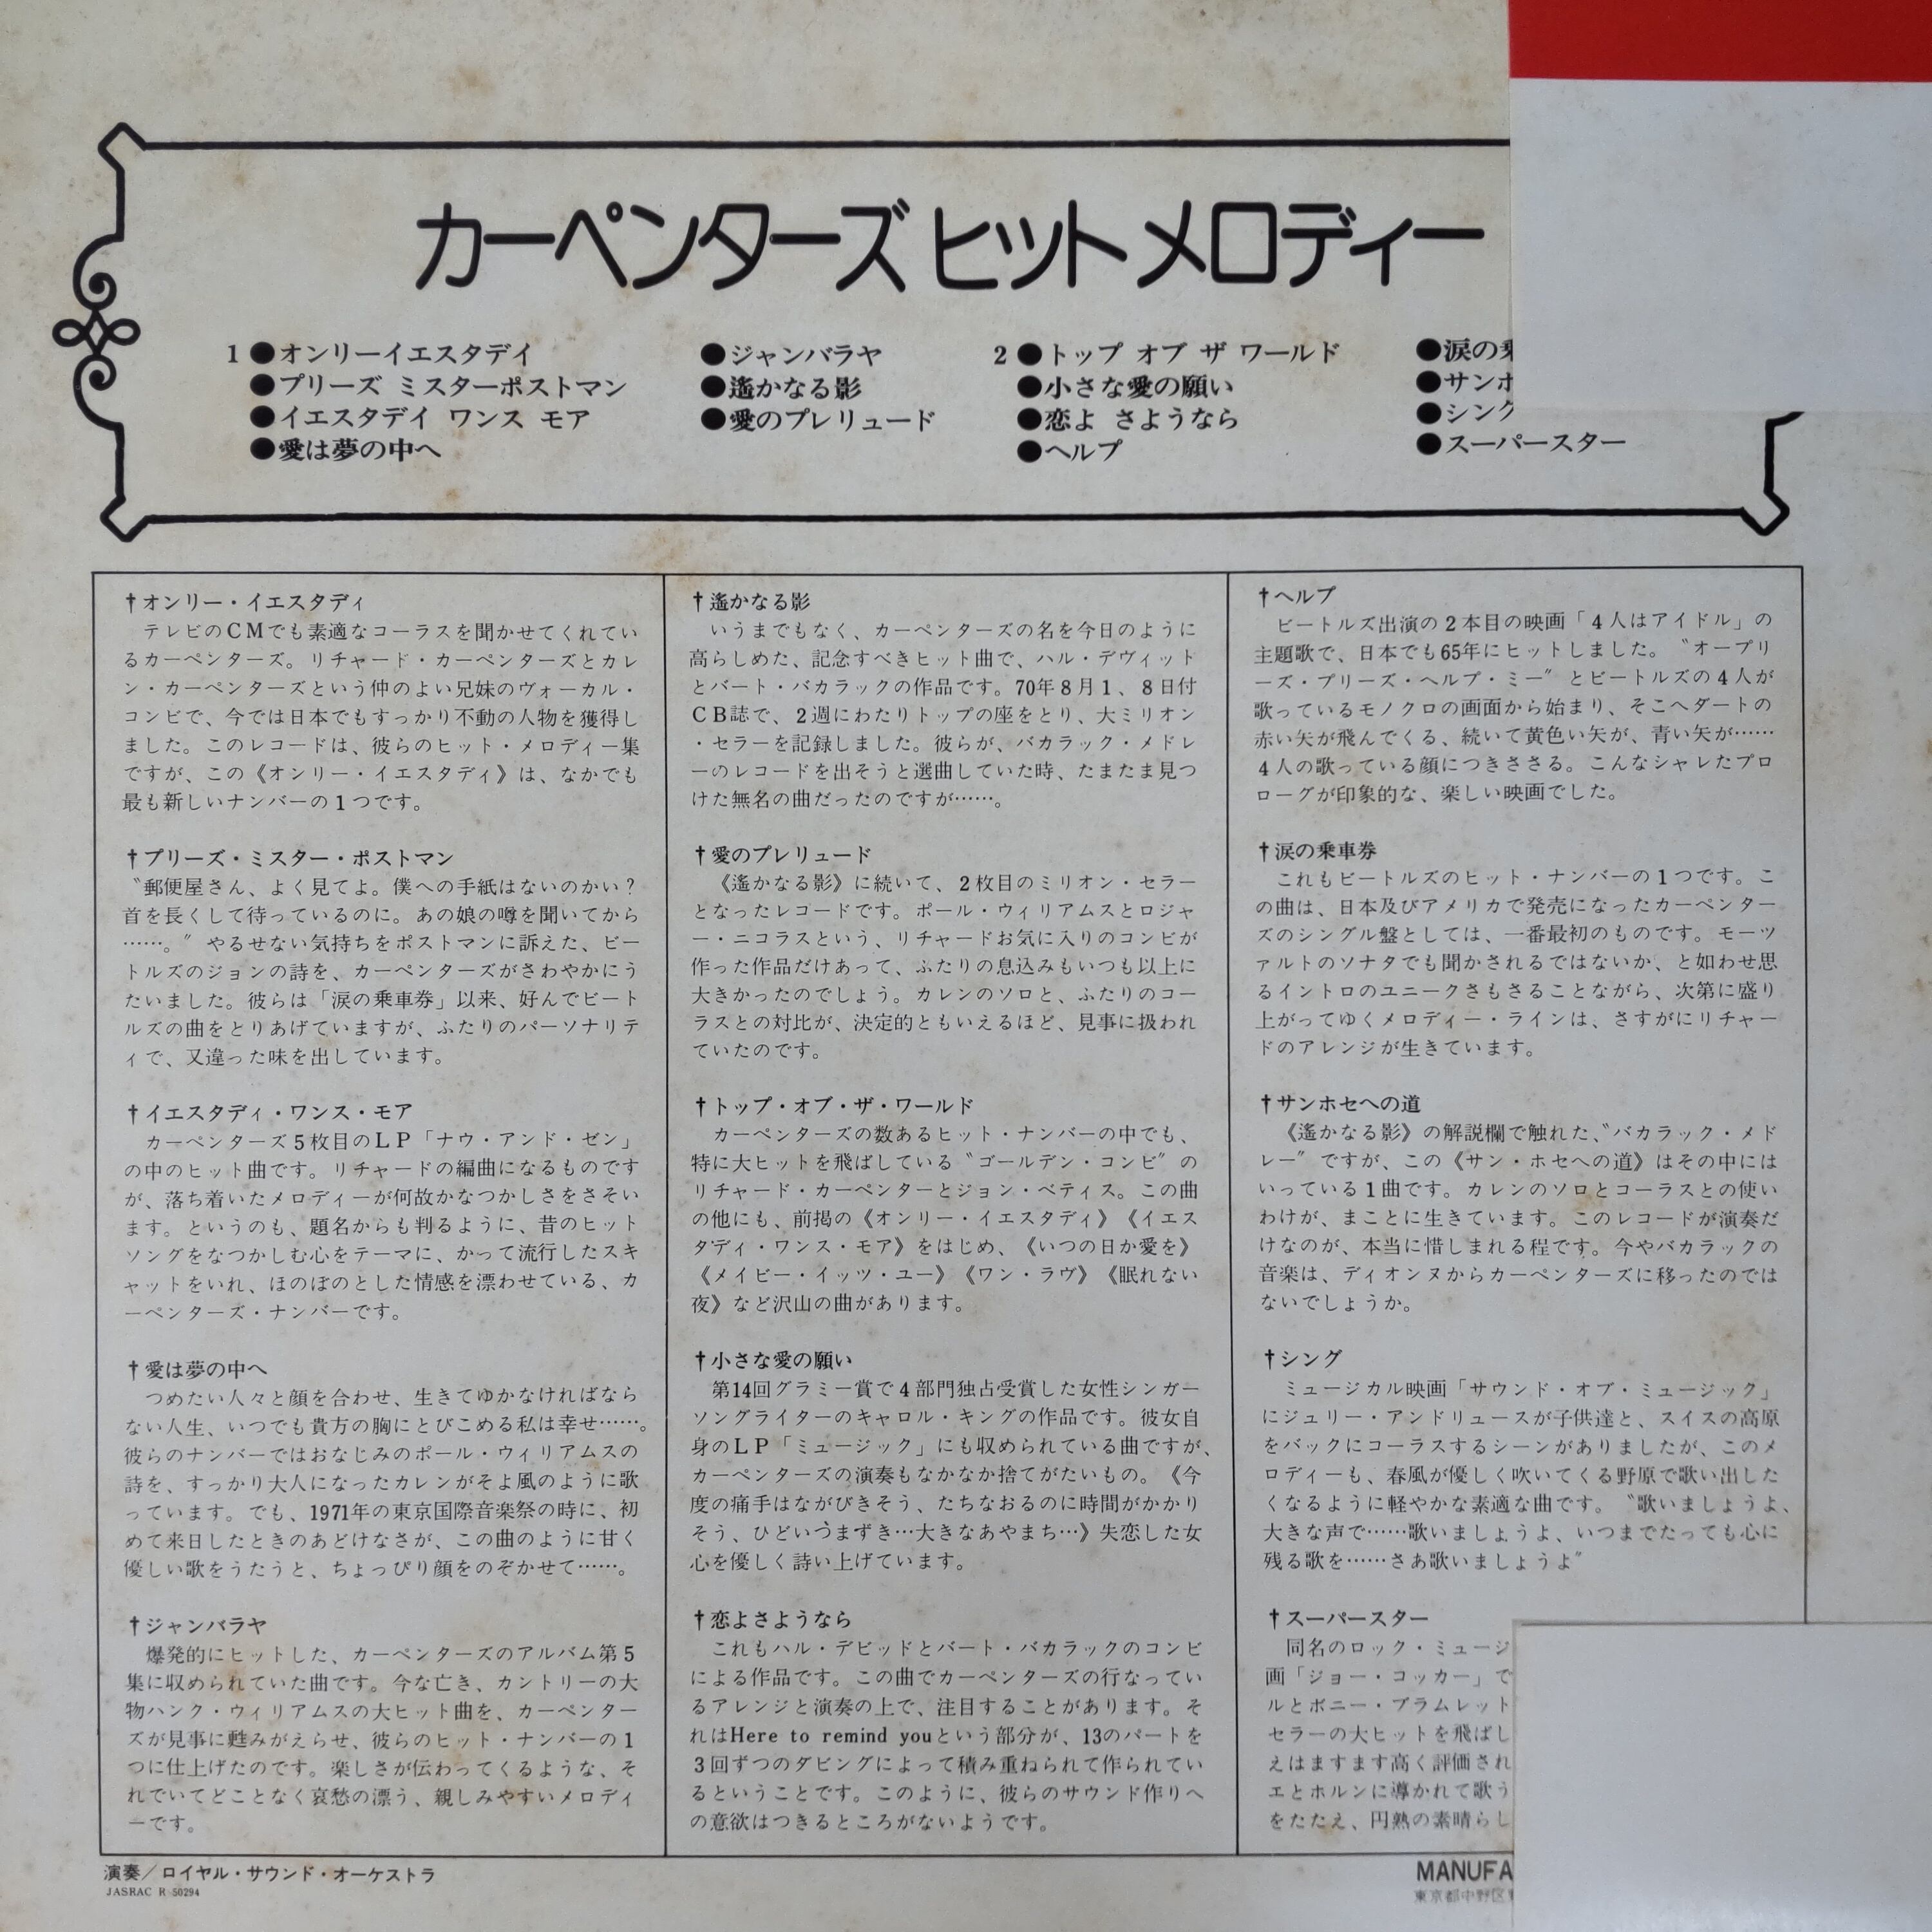 カーペンターズ ヒット メロディー
1 ●オンリーイエスタデイ
●プリーズ ミスターポストマン
●イエスタデイ ワンス モア
●愛は夢の中へ
●ジャンバラヤ
●遙かなる影
●愛のプレリュード
2 ●トップ オブ ザ ワールド
●小さな愛の願い
●恋よ さようなら
●ヘルプ
●涙の
●サンホ
●シング
●スーパースター
†オンリー・イエスタディ
テレビのCMでも素適なコーラスを聞かせてくれてい
るカーペンターズ。リチャード・カーペンターズとカレ
ン・カーペンターズという仲のよい兄妹のヴォーカル・
コンビで、今では日本でもすっかり不動の人物を獲得し
ました。このレコードは、彼らのヒット・メロディー集
ですが、この《オンリー・イエスタディ》は、なかでも
最も新しいナンバーの1つです。
†プリーズ・ミスター・ポストマン
〝郵便屋さん、よく見てよ。僕への手紙はないのかい？
首を長くして待っているのに。あの娘の噂を聞いてから
……。〞やるせない気持ちをポストマンに訴えた、ビー
トルズのジョンの詩を、カーペンターズがさわやかにう
たいました。彼らは「涙の乗車券」以来、好んでビート
ルズの曲をとりあげていますが、ふたりのパーソナリテ
ィで、又違った味を出しています。
†イエスタディ・ワンス・モア
カーペンターズ5枚目のLP「ナウ・アンド・ゼン」
の中のヒット曲です。リチャードの編曲になるものです
が、落ち着いたメロディーが何故かなつかしさをさそい
ます。というのも、題名からも判るように、昔のヒット
ソングをなつかしむ心をテーマに、かって流行したスキ
ャットをいれ、ほのぼのとした情感を漂わせている、カ
ーペンターズ・ナンバーです。
†愛は夢の中へ
つめたい人々と顔を合わせ、生きてゆかなければなら
ない人生、いつでも貴方の胸にとびこめる私は幸せ……。
彼らのナンバーではおなじみのポール・ウィリアムスの
詩を、すっかり大人になったカレンがそよ風のように歌
っています。でも、1971年の東京国際音楽祭の時に、初
めて来日したときのあどけなさが、この曲のように甘く
優しい歌をうたうと、ちょっぴり顔をのぞかせて……。
†ジャンバラヤ
爆発的にヒットした、カーペンターズのアルバム第5
集に収められていた曲です。今な亡き、カントリーの大
物ハンク・ウィリアムスの大ヒット曲を、カーペンター
ズが見事に甦みがえらせ、彼らのヒット・ナンバーの1
つに仕上げたのです。楽しさが伝わってくるような、そ
れでいてどことなく哀愁の漂う、親しみやすいメロディ
ーです。
†遙かなる影
いうまでもなく、カーペンターズの名を今日のように
高らしめた、記念すべきヒット曲で、ハル・デヴィット
とバート・バカラックの作品です。70年8月1、8日付
CB誌で、2週にわたりトップの座をとり、大ミリオン
・セラーを記録しました。彼らが、バカラック・メドレ
ーのレコードを出そうと選曲していた時、たまたま見つ
けた無名の曲だったのですが……。
†愛のプレリュード
《遙かなる影》に続いて、2枚目のミリオン・セラー
となったレコードです。ポール・ウィリアムスとロジャ
ー・ニコラスという、リチャードお気に入りのコンビが
作った作品だけあって、ふたりの息込みもいつも以上に
大きかったのでしょう。カレンのソロと、ふたりのコー
ラスとの対比が、決定的ともいえるほど、見事に扱われ
ていたのです。
†トップ・オブ・ザ・ワールド
カーペンターズの数あるヒット・ナンバーの中でも、
特に大ヒットを飛ばしている〝ゴールデン・コンビ〞の
リチャード・カーペンターとジョン・ベティス。この曲
の他にも、前掲の《オンリー・イエスタディ》《イエス
タディ・ワンス・モア》をはじめ、《いつの日か愛を》
《メイビー・イッツ・ユー》《ワン・ラヴ》《眠れない
夜》など沢山の曲があります。
†小さな愛の願い
第14回グラミー賞で4部門独占受賞した女性シンガー
ソングライターのキャロル・キングの作品です。彼女自
身のLP「ミュージック」にも収められている曲ですが、
カーペンターズの演奏もなかなか捨てがたいもの。《今
度の痛手はながびきそう、たちなおるのに時間がかかり
そう、ひどいつまずき…大きなあやまち…》失恋した女
心を優しく詩い上げています。
†恋よさようなら
これもハル・デビッドとバート・バカラックのコンビ
による作品です。この曲でカーペンターズの行なってい
るアレンジと演奏の上で、注目することがあります。そ
れはHere to remind youという部分が、13のパートを
3回ずつのダビングによって積み重ねられて作られてい
るということです。このように、彼らのサウンド作りへ
の意欲はつきるところがないようです。
†ヘルプ
ビートルズ出演の2本目の映画「4人はアイドル」の
主題歌で、日本でも65年にヒットしました。〝オープリ
ーズ・プリーズ・ヘルプ・ミー〞とビートルズの4人が
歌っているモノクロの画面から始まり、そこへダートの
赤い矢が飛んでくる、続いて黄色い矢が、青い矢が……
4人の歌っている顔につきささる。こんなシャレたプロ
ローグが印象的な、楽しい映画でした。
†涙の乗車券
これもビートルズのヒット・ナンバーの1つです。こ
の曲は、日本及びアメリカで発売になったカーペンター
ズのシングル盤としては、一番最初のものです。モーツ
ァルトのソナタでも聞かされるではないか、と如わせ思
るイントロのユニークさもさることながら、次第に盛り
上がってゆくメロディー・ラインは、さすがにリチャー
ドのアレンジが生きています。
†サンホセへの道
《遙かなる影》の解説欄で触れた、〝バカラック・メド
レー〞ですが、この《サン・ホセへの道》はその中には
いっている1曲です。カレンのソロとコーラスとの使い
わけが、まことに生きています。このレコードが演奏だ
けなのが、本当に惜しまれる程です。今やバカラックの
音楽は、ディオンヌからカーペンターズに移ったのでは
ないでしょうか。
†シング
ミュージカル映画「サウンド・オブ・ミュージック」
にジュリー・アンドリュースが子供達と、スイスの高原
をバックにコーラスするシーンがありましたが、このメ
ロディーも、春風が優しく吹いてくる野原で歌い出した
くなるように軽やかな素適な曲です。〝歌いましょうよ、
大きな声で……歌いましょうよ、いつまでたっても心に
残る歌を……さあ歌いましょうよ〞
†スーパースター
同名のロック・ミュージ
画「ジョー・コッカー」で
ルとボニー・ブラムレット
セラーの大ヒットを飛ばし
えはますます高く評価され
エとホルンに導かれて歌う
をたたえ、円熟の素晴らし
演奏／ロイヤル・サウンド・オーケストラ
JASRAC R-50294
MANUFA
東京都中野区